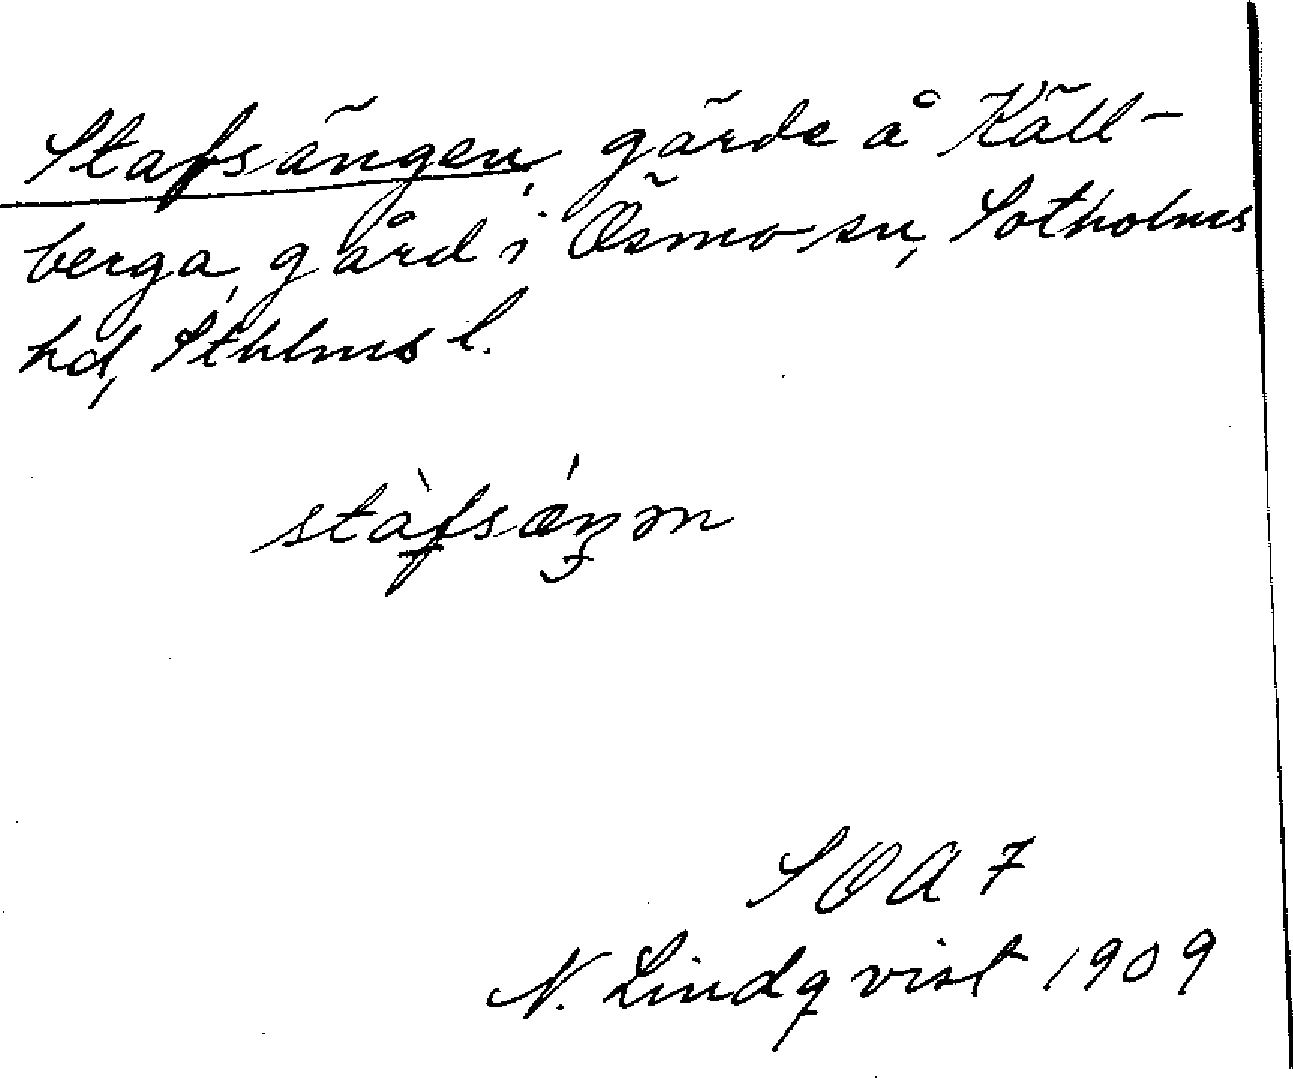 Stafsängen, gärde å Käll-
berga gård i Ösmo sn, Sotholms
hd, Sthlms l.
stàfsǽŋən
SOA 7
N. Lindqvist 1909